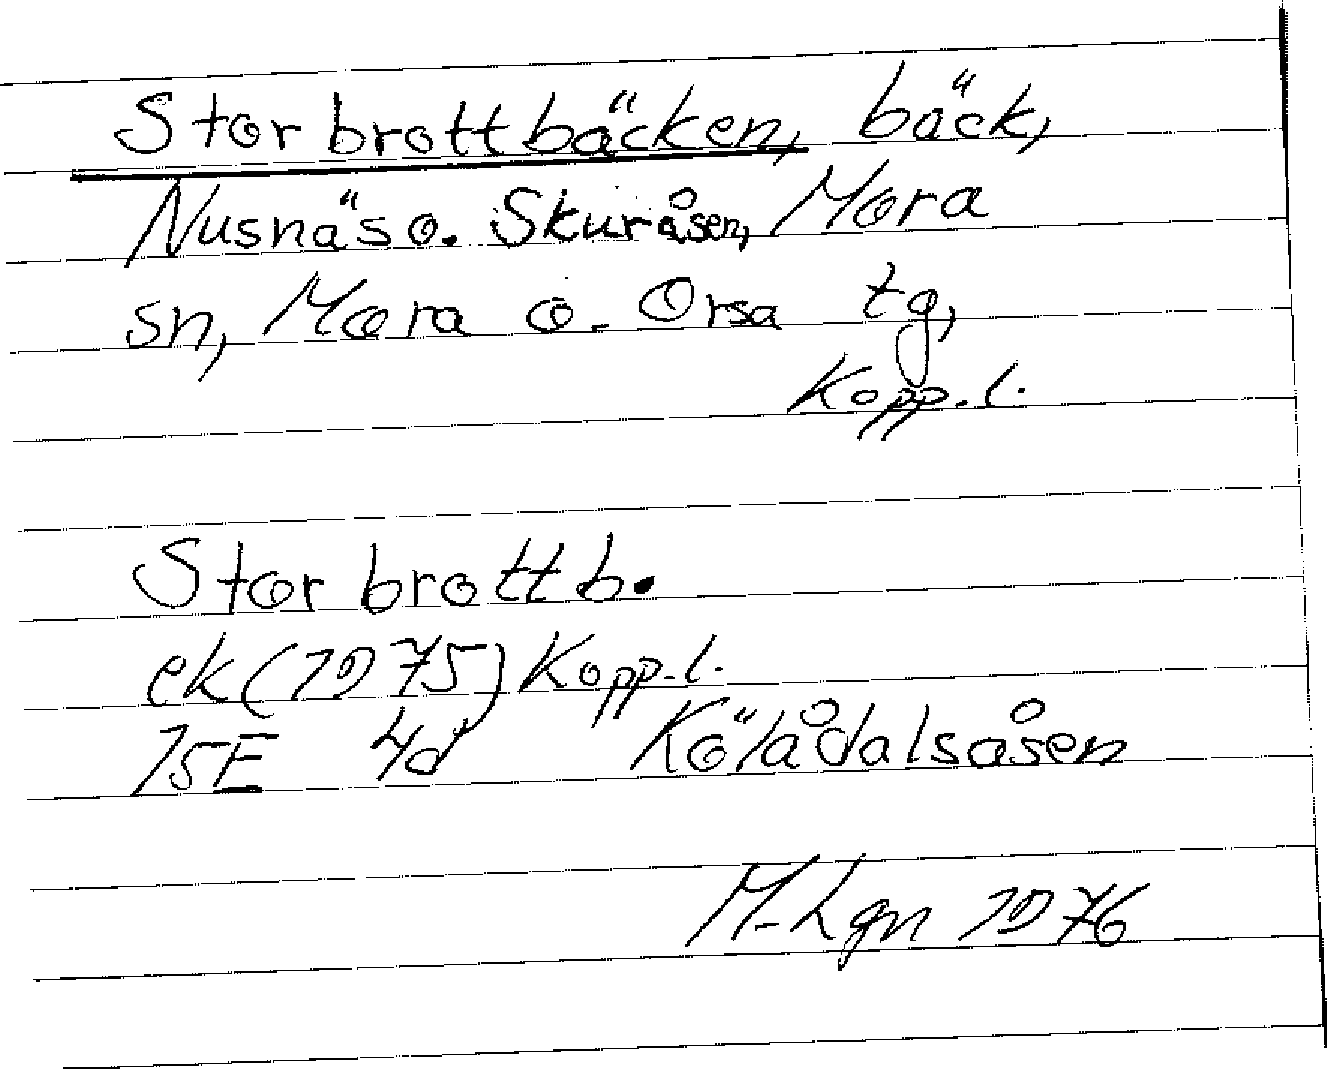 Storbrottbäcken, bäck,
Nusnäs o. Skuråsen, Mora
sn, Mora o. Orsa tg,
Kopp. l.
Storbrottb.
ek (1975) Kopp. l.
15E 4d Kölådalsåsen
M. Lgn 1976